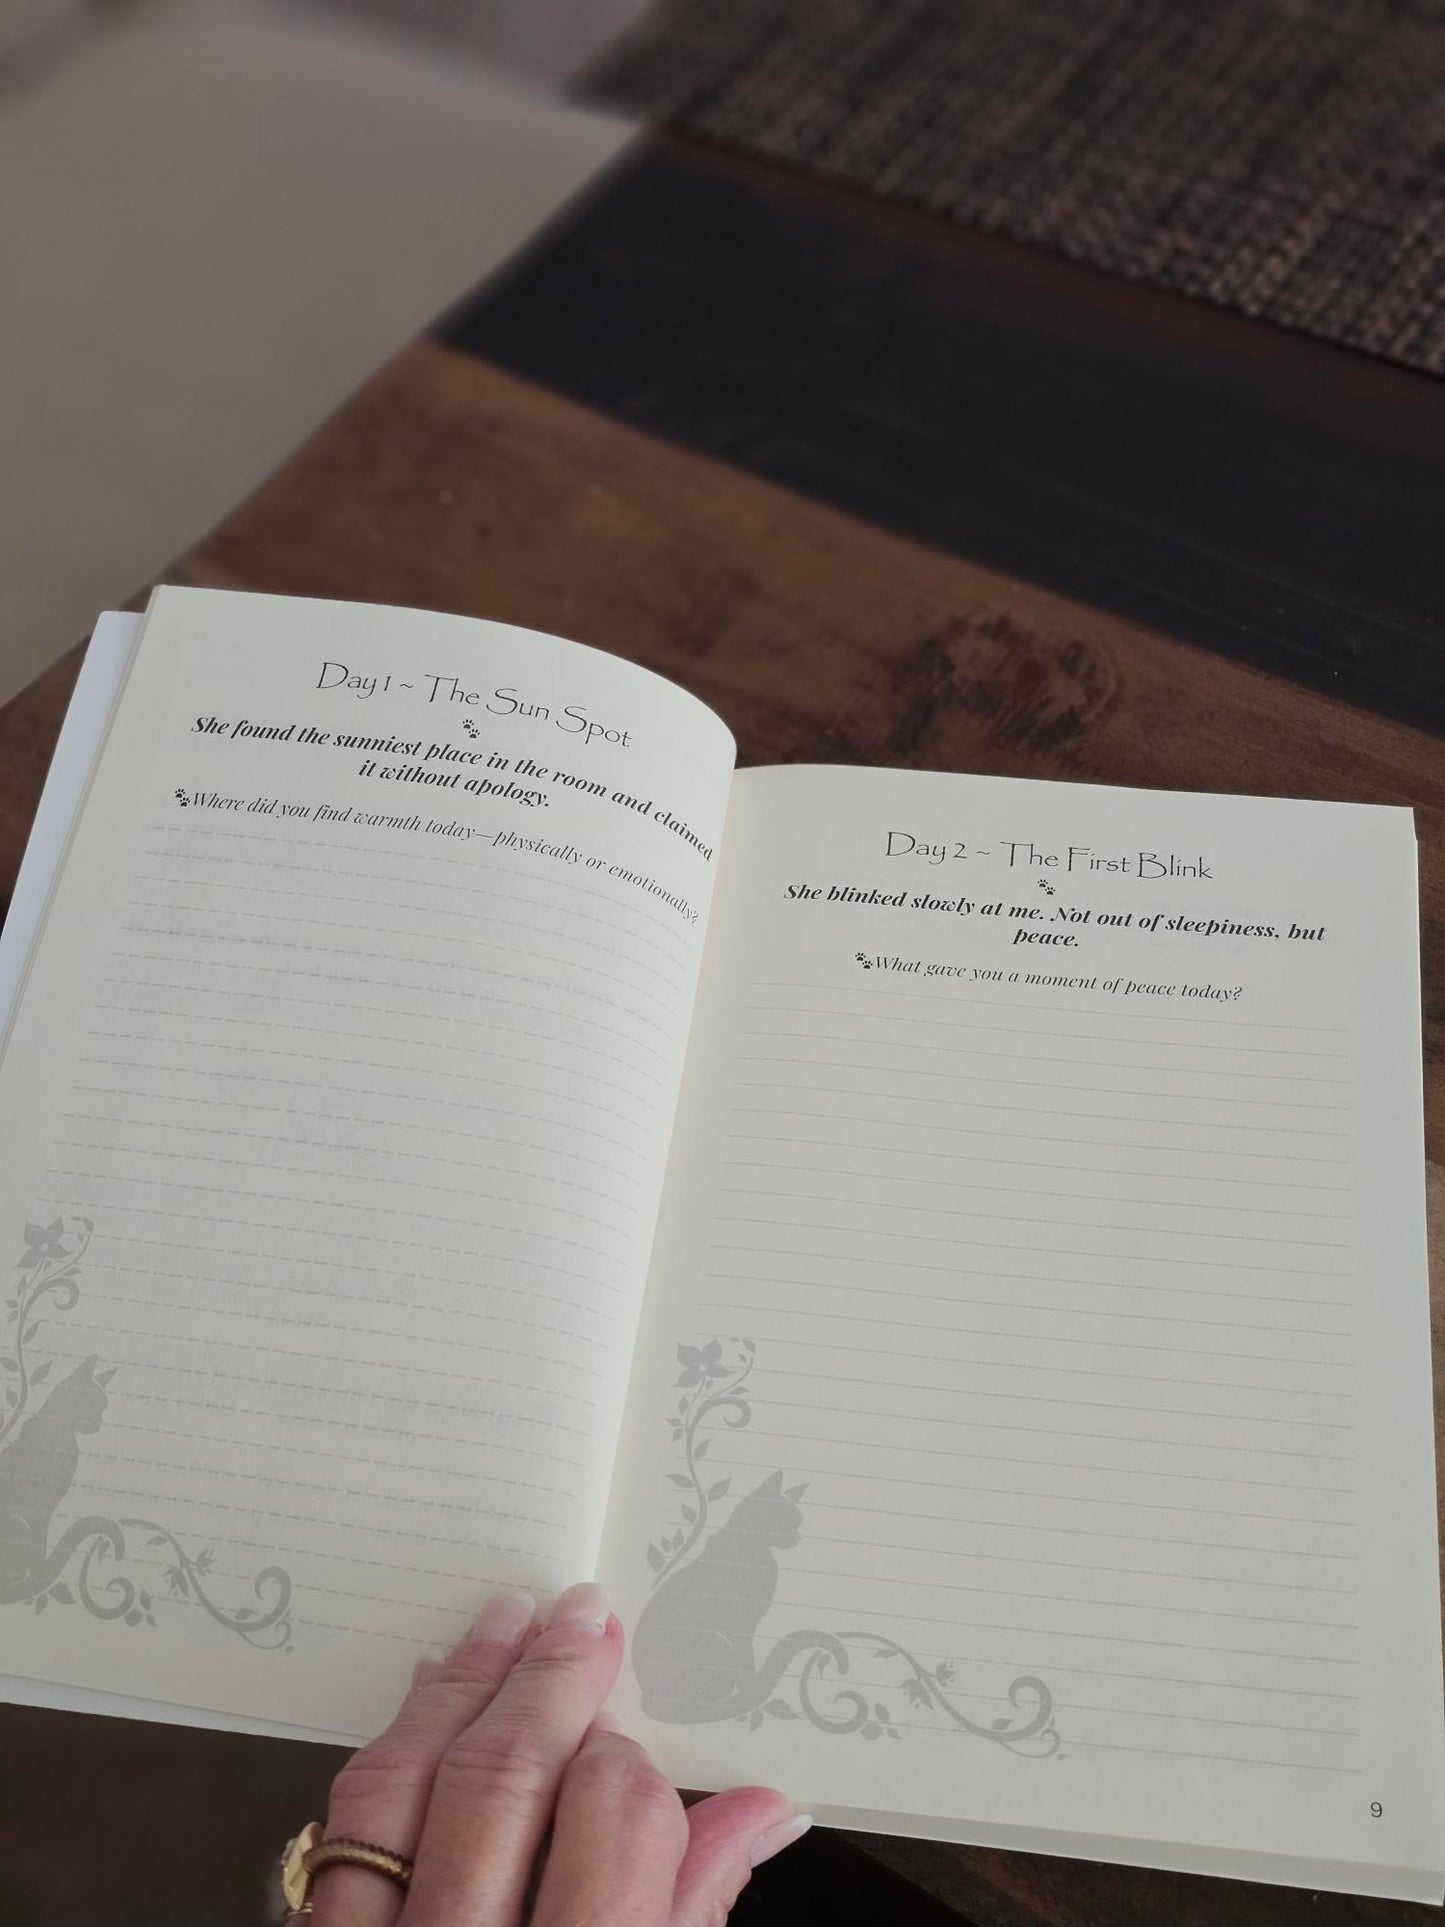 Day 1 ~ The Sun Spot
She found the sunniest place in the room and claimed
it without apology.
Where did you find warmth today—physically or emotionally?
Day 2 ~ The First Blink
She blinked slowly at me. Not out of sleepiness, but
peace.
What gave you a moment of peace today?
9